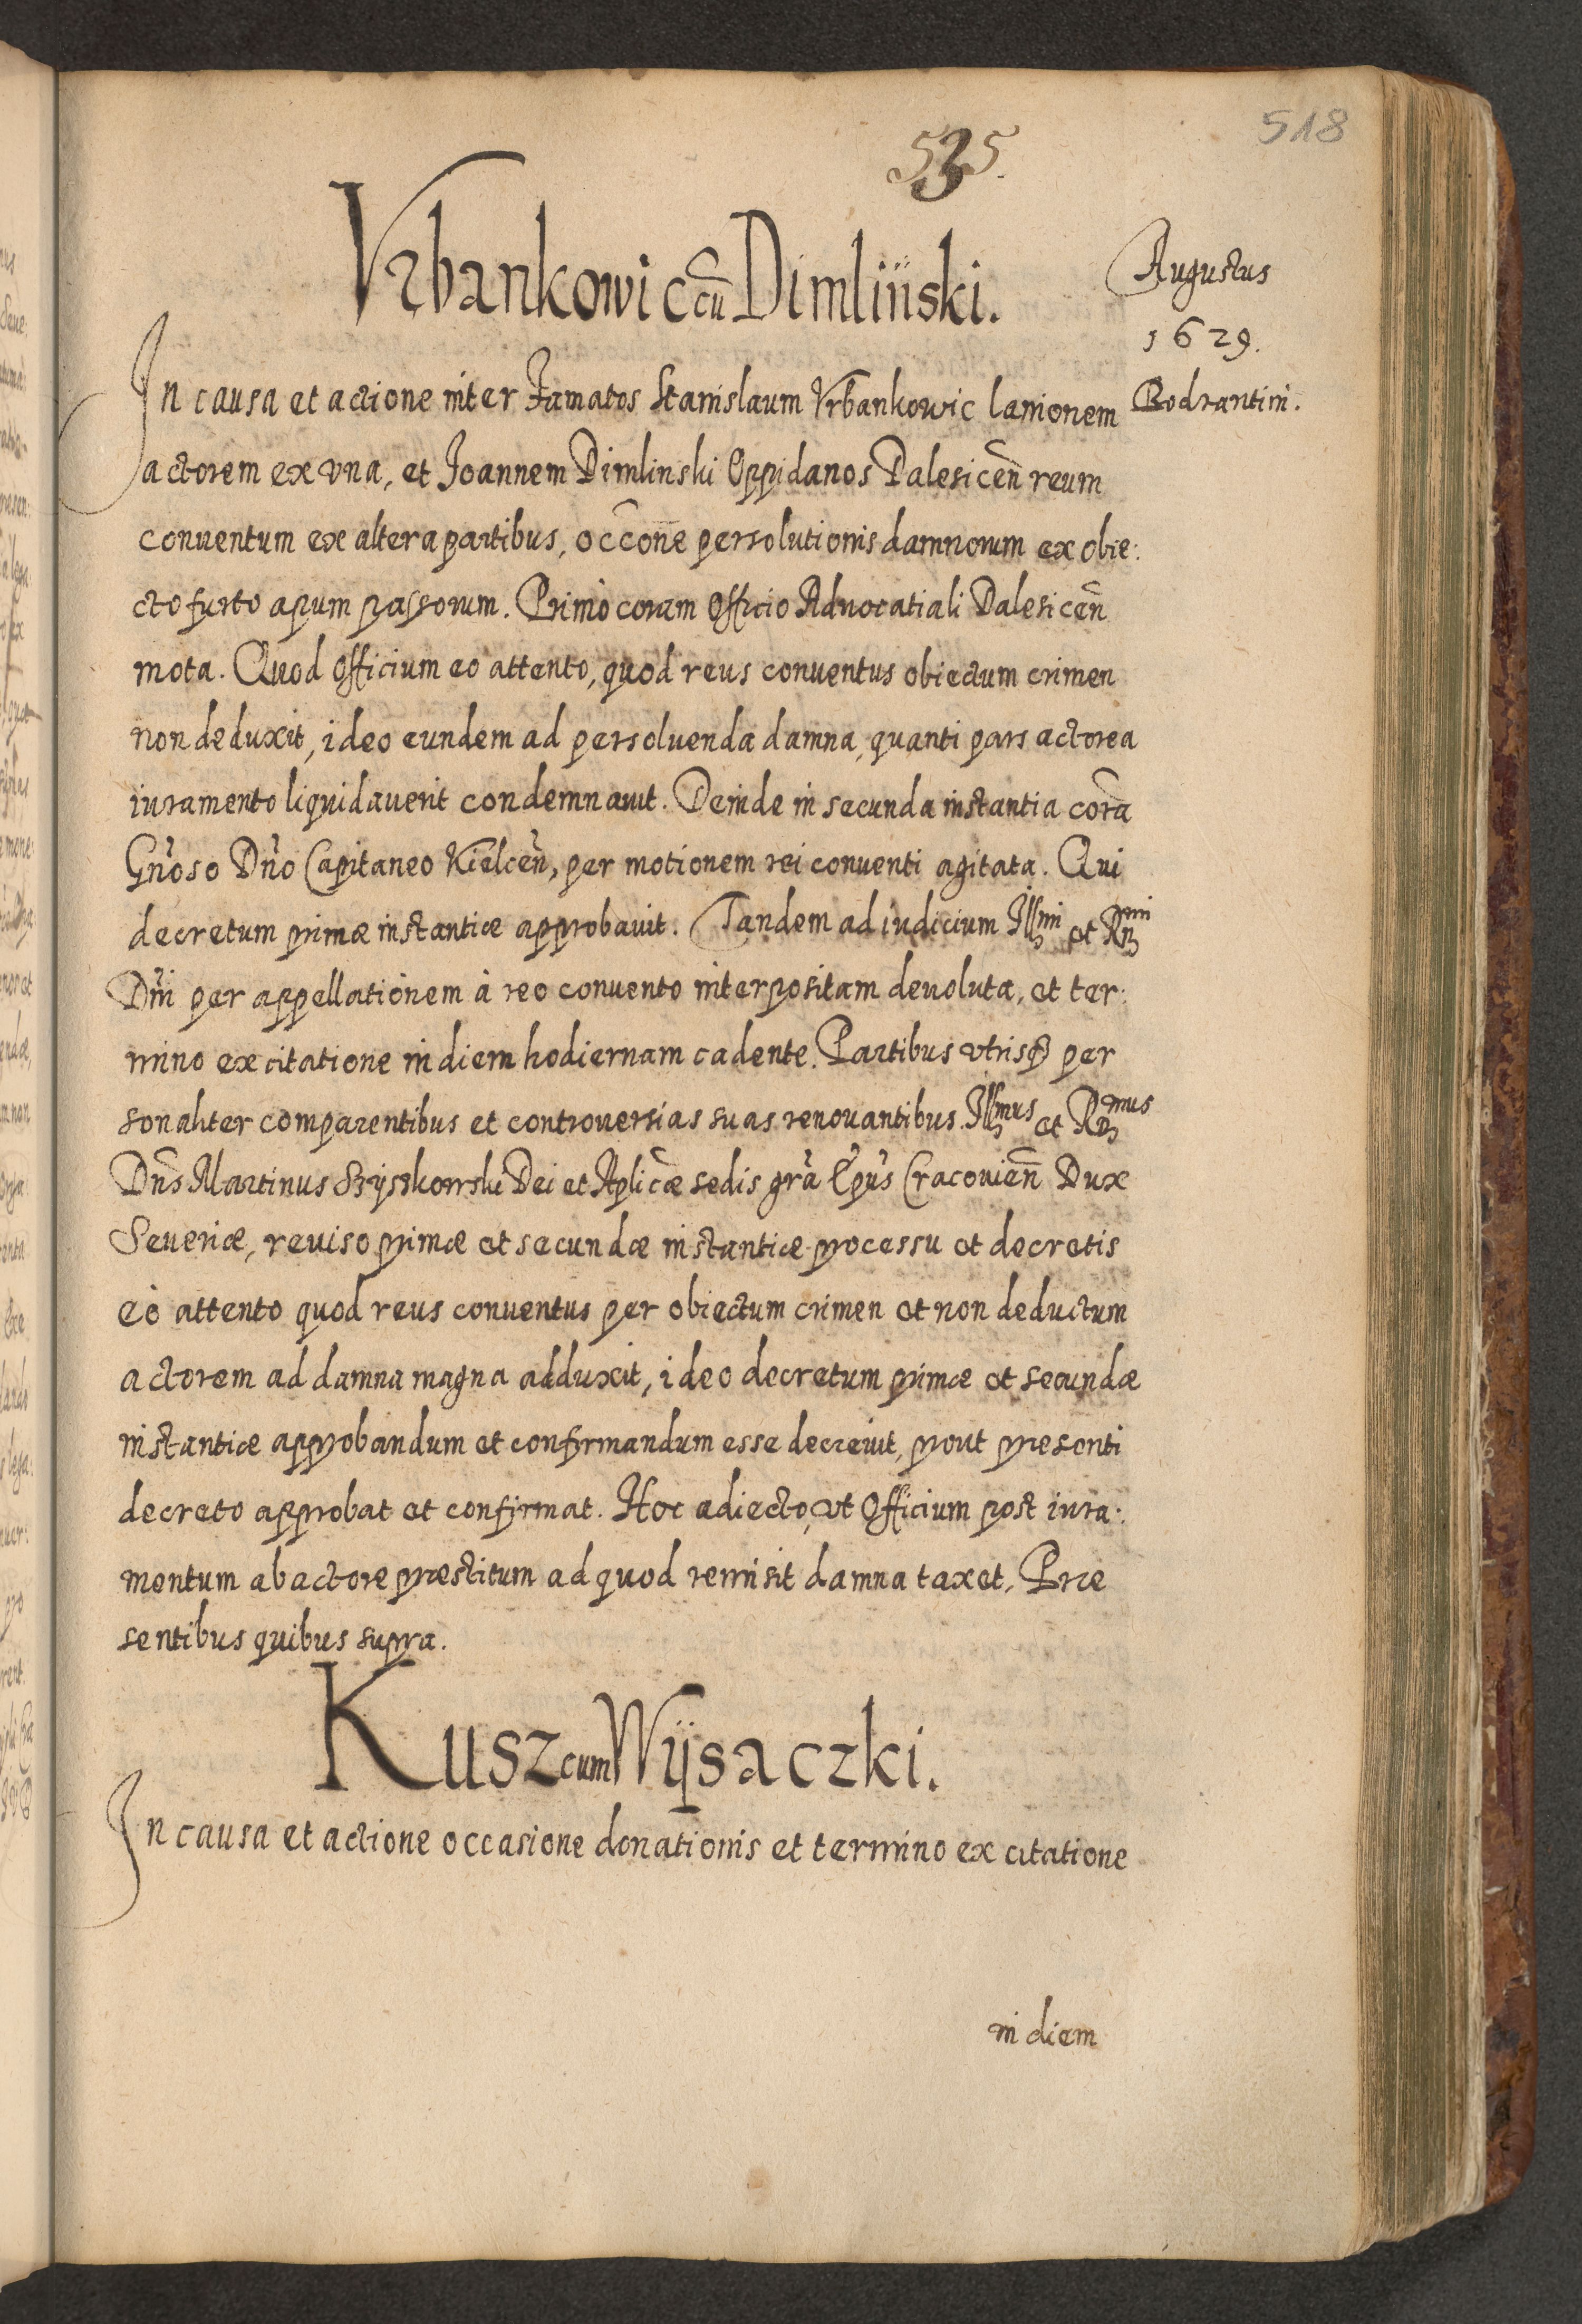 518
535.
Vrbankowic cũ Dimliński.
Augustus
1629.
Bodzantini.
In causa et actione inter Famatos Stanislaum Vrbankowic lanionem
actorem ex vna, et Joannem Dimlinski Oppidanos Dalesicen̄ reum
conuentum ex altera partibus, occōne persolutionis damnorum ex obie:
cto furto apum passorum. Primò coram Officio Aduocatiali Dalesicen̄
mota. Quod Officium eo attento, quod reus conuentus obiectum crimen
non deduxit, ideo eundem ad persoluenda damna, quanti pars actorea
iuramento liquidauerit condemnauit. Deinde in secunda instantia corã
Gnõso Dño Capitaneo Kielcen̄, per motionem rei conuenti agitata. Qui
decretum primæ instantiæ approbauit. Tandem ad iudicium Illmi et Rmi
Dñi per appellationem à reo conuento interpositam deuoluta, et ter:
mino ex citatione in diem hodiernam cadente. Partibus vtrisq3 per
sonaliter comparentibus et controuersias suas renouantibus. Illmus et Rmus
Dñs Martinus Szyszkowski Dei et Aplicæ sedis grã Epũs Cracouien̄ Dux
Seueriæ, reuiso primæ et secundæ instantiæ processu et decretis
eò attento quod reus conuentus per obiectum crimen et non deductum
actorem ad damna magna adduxit, ideo decretum primæ et secundæ
instantiæ approbandum et confirmandum esse decreuit, prout præsenti
decreto approbat et confirmat. Hoc adiecto, vt Officium post iura:
mentum ab actore præstitum ad quod remisit damna taxet, Præ
sentibus quibus supra.
Kusz cum Wÿsaczki.
In causa et actione occasione donationis et termino ex citatione
in diem